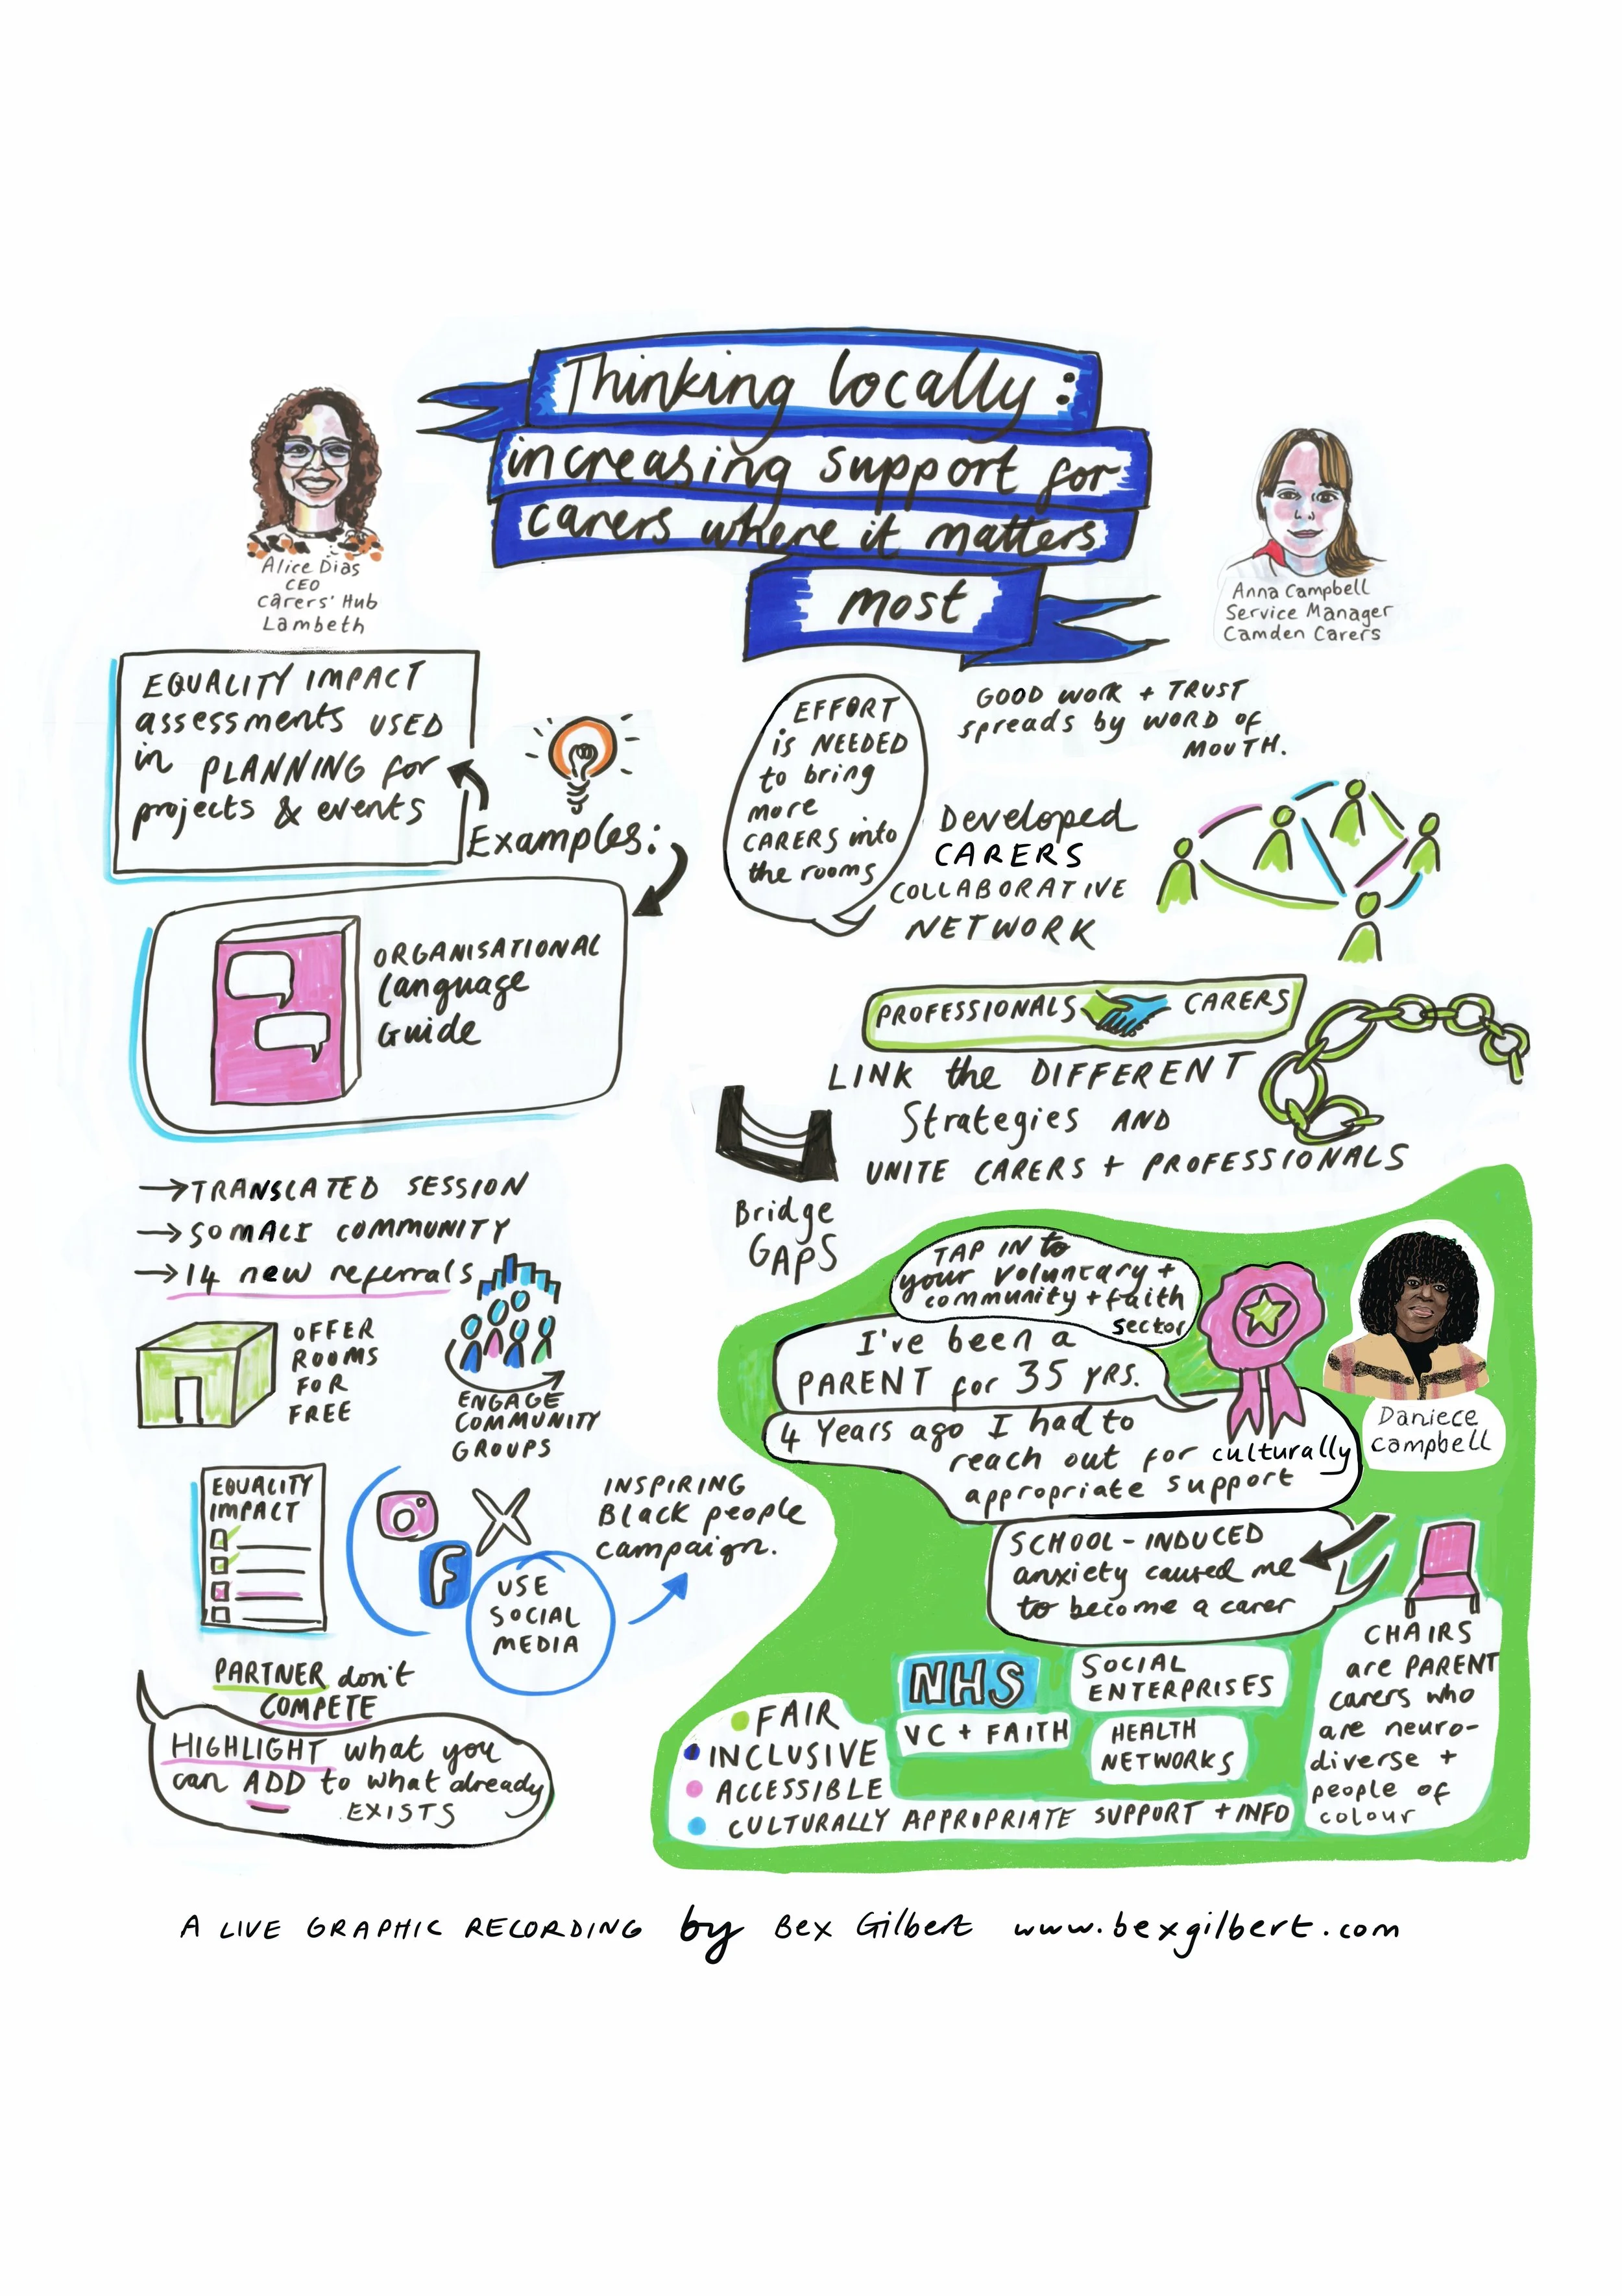 Thinking locally:
increasing support for
carers where it matters
most
Alice Dias
CEO
Carers' Hub
Lambeth
Anna Campbell
Service Manager
Camden Carers
EQUALITY IMPACT
assessments USED
in PLANNING for
projects & events
Examples:
ORGANISATIONAL
Language
Guide
→TRANSLATED SESSION
→SOMALI COMMUNITY
→14 new referrals
OFFER
ROOMS
FOR
FREE
ENGAGE
COMMUNITY
GROUPS
EQUALITY
IMPACT
F
USE
SOCIAL
MEDIA
INSPIRING
Black people
campaign.
PARTNER don't
COMPETE
HIGHLIGHT what you
can ADD to what already
EXISTS
EFFORT
is NEEDED
to bring
more
CARERS into
the rooms
GOOD WORK + TRUST
spreads by WORD OF
MOUTH.
Developed
CARERS
COLLABORATIVE
NETWORK
PROFESSIONALS CARERS
LINK the DIFFERENT
Strategies AND
UNITE CARERS + PROFESSIONALS
Bridge
GAPS
TAP IN to
your voluntary +
community + faith
sector
I've been a
PARENT for 35 YRS.
4 Years ago I had to
reach out for culturally
appropriate support
Daniece
Campbell
SCHOOL-INDUCED
anxiety caused me
to become a carer
CHAIRS
are PARENT
carers who
are neuro-
diverse +
people of
colour
NHS
SOCIAL
ENTERPRISES
VC + FAITH
HEALTH
NETWORKS
FAIR
INCLUSIVE
ACCESSIBLE
CULTURALLY APPROPRIATE SUPPORT + INFO
A LIVE GRAPHIC RECORDING by Bex Gilbert www.bexgilbert.com